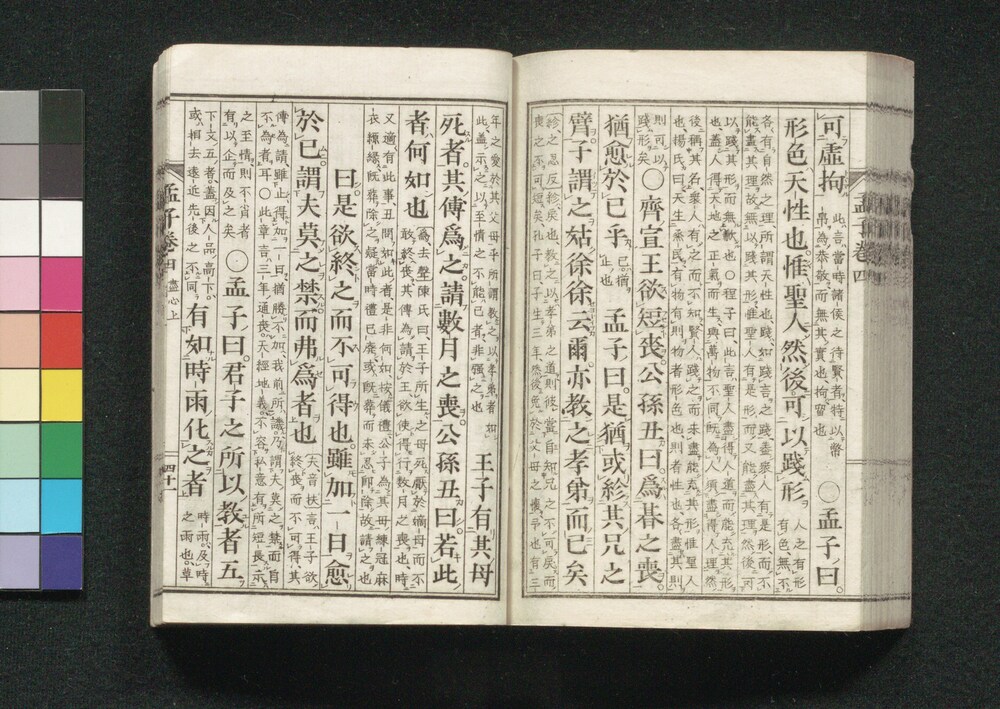 孟子卷四
可虛拘
此言當時諸侯之待賢者特以幣
帛為恭敬而無其實也拘留也
○孟子曰
形色天性也惟聖人然後可以踐形
人之有形
有色無不
各有自然之理所謂天性也踐如踐言之踐蓋衆人有是形而不
能盡其理故無以踐其形惟聖人有是形而又能盡其理然後可
以踐其形而無歉也○程子曰此言聖人盡得人道而能充其形
也蓋人得天地之正氣而生與萬物不同既為人須盡得人理然
後稱其名衆人有之而不知賢人踐之而未盡能充其形惟聖人
也楊氏曰天生烝民有物有則物者形色也則者性也各盡其則
則可以
踐形矣
○齊宣王欲短喪公孫丑曰為朞之喪
猶愈於已乎
已猶
止也
孟子曰是猶或紾其兄之
臂子謂之姑徐徐云爾亦教之孝弟而已矣
紾之忍反紾戾也教之以孝弟之道則彼當自知兄之不可戾而
喪之不可短矣孔子曰子生三年然後免於父母之懷予也有三
年之愛於其父母乎所謂教之以孝弟者如
此蓋示之以至情之不能已者非强之也
王子有其母
死者其傅為之請數月之喪公孫丑曰若此
者何如也
為去聲陳氏曰王子所生之母死厭於嫡母而不
敢終喪其傅為請於王欲使得行數月之喪也時
又適有此事丑問如此者是非何如按儀禮公子為其母練冠麻
衣縓緣既葬除之疑當時禮已廢或既葬而未忍即除故請之也
曰是欲終之而不可得也雖加一日愈
於已謂夫莫之禁而弗為者也
夫音扶言王子欲
終喪而不可得其
傅為請雖止得加一日猶勝不加我前所譏乃謂夫莫之禁而自
不為者耳○此章言三年通喪天經地義不容私意有所短長示
之至情則不肖者
有以企而及之矣
○孟子曰君子之所以教者五
下文五者蓋因人品高下
或相去遠近先後之不同
有如時雨化之者
時雨及時
之雨也草
孟子卷四 盡心上 四十一